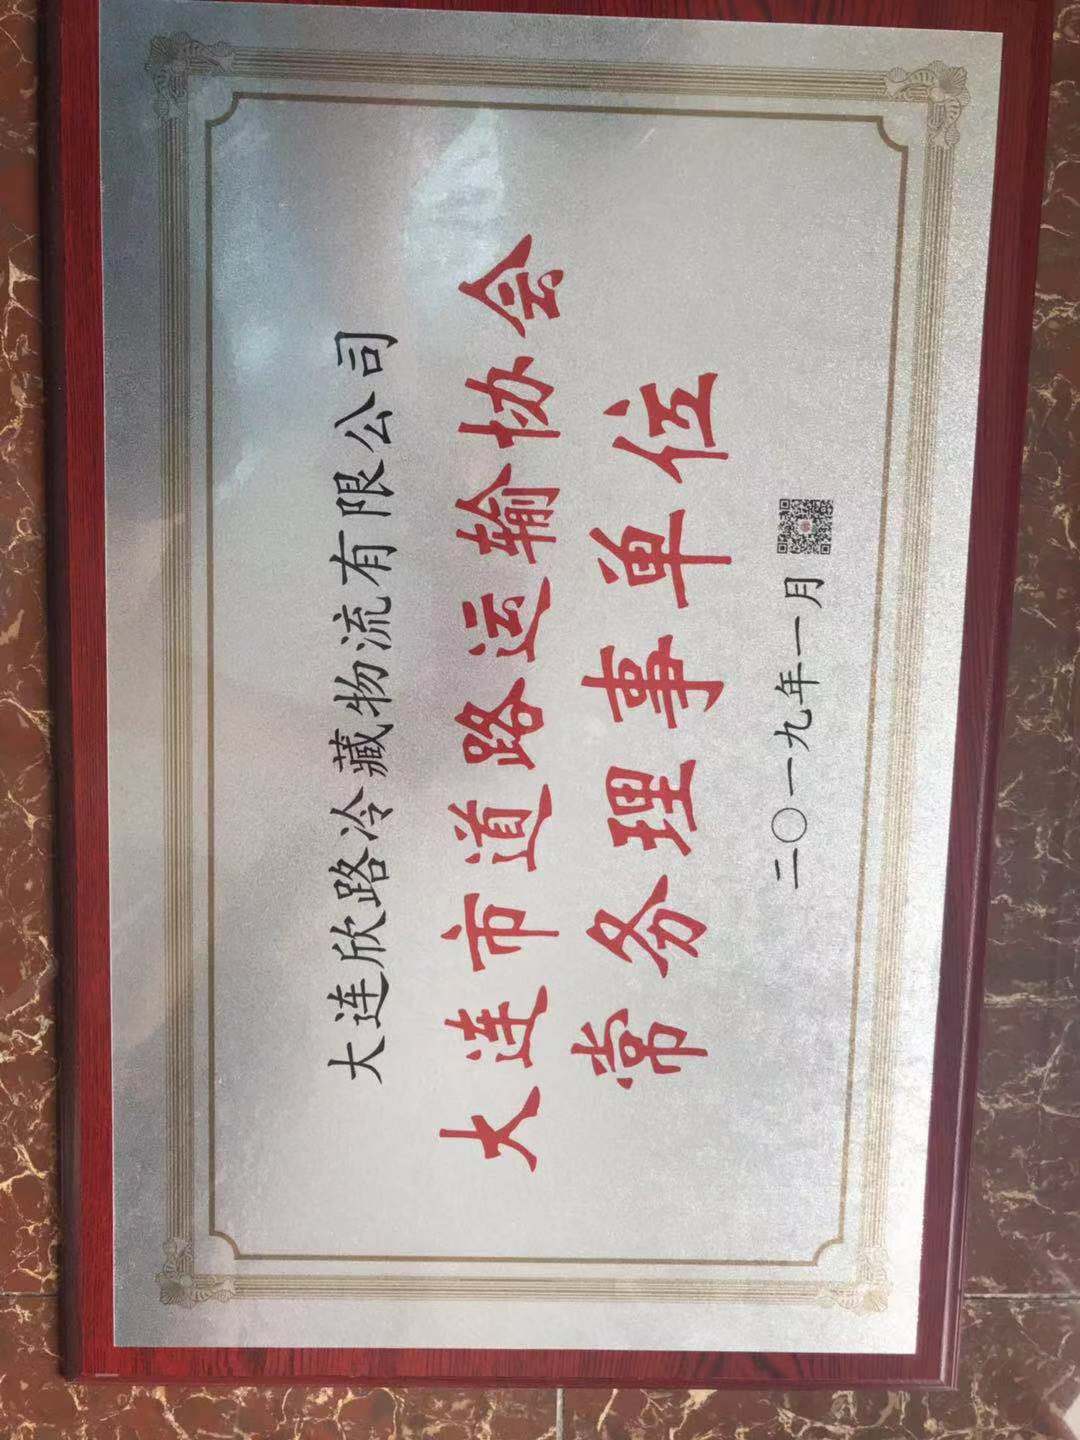 大连欣路冷藏物流有限公司
大连市道路运输协会
常务理事单位
二〇一九年一月